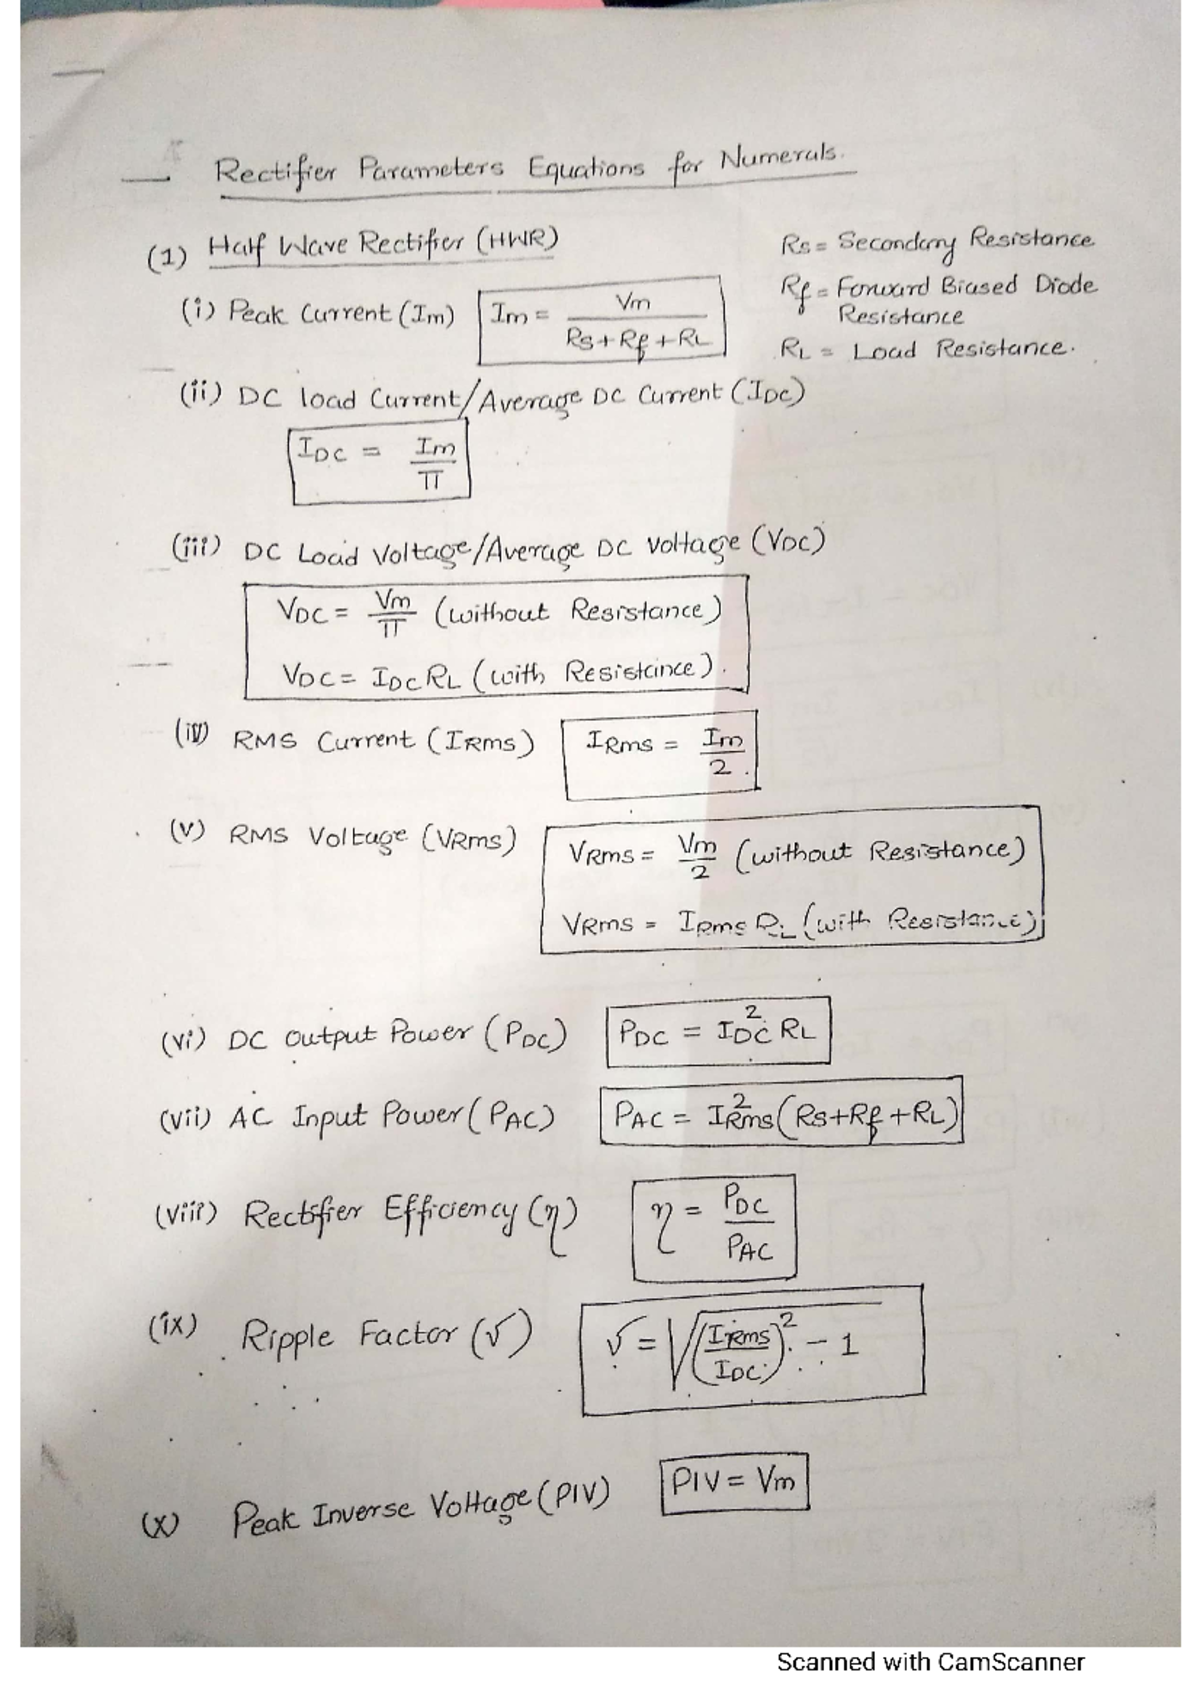 Rectifier Parameters Equations for Numerals.
(1) Half Wave Rectifier (HWR)
Rs = Secondary Resistance
Rf = Forward Biased Diode
Resistance
RL = Load Resistance.
(i) Peak Current (Im) Im = Vm / Rs + Rf + RL
(ii) DC load Current/Average DC Current (IDC)
IDC = Im / π
(iii) DC Load Voltage/Average DC Voltage (VDC)
VDC = Vm / π (without Resistance)
VDC = IDC RL (with Resistance).
(iv) RMS Current (IRms) IRms = Im / 2
(v) RMS Voltage (VRms)
VRms = Vm / 2 (without Resistance)
VRms = IRms RL (with Resistance)
(vi) DC output Power (PDC) PDC = IDC² RL
(vii) AC Input Power (PAC) PAC = IRms² (Rs+Rf+RL)
(viii) Rectifier Efficiency (η) η = PDC / PAC
(ix) Ripple Factor (√) √ = √(IRms / IDC)² - 1
(x) Peak Inverse Voltage (PIV) PIV = Vm
Scanned with CamScanner